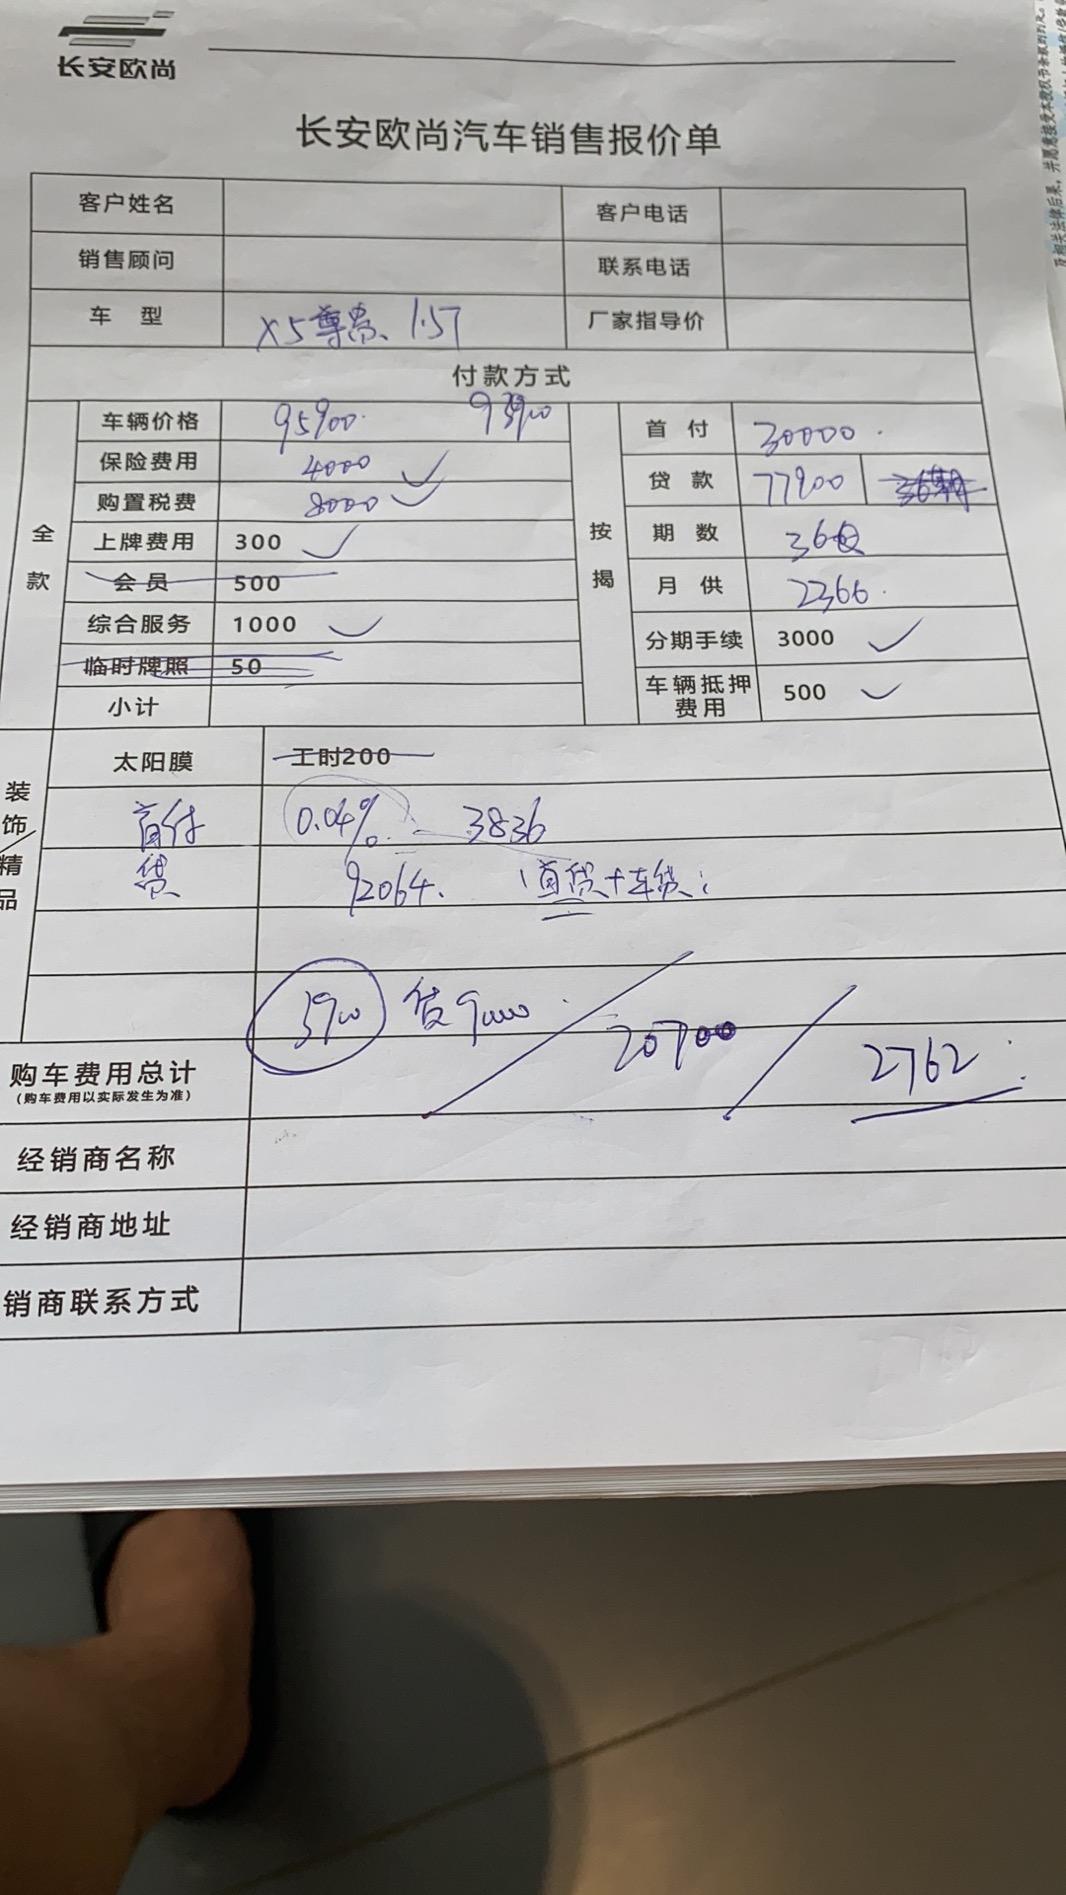 长安欧尚
长安欧尚汽车销售报价单
客户姓名 客户电话
销售顾问 联系电话
车 型 X5尊贵、1.5T 厂家指导价
付款方式
全款
车辆价格 95900. 93900
保险费用 4000
购置税费 8000
上牌费用 300
会员 500
综合服务 1000
临时牌照 50
小计
按揭
首 付 30000.
贷 款 77900 36期
期 数 36
月 供 2366.
分期手续 3000
车辆抵押费用 500
装饰/精品
太阳膜 工时200
首付 0.04% 3836
贷 92064. 首贷+车贷
3900 贷90000 20700 2762
购车费用总计
(购车费用以实际发生为准)
经销商名称
经销商地址
销商联系方式